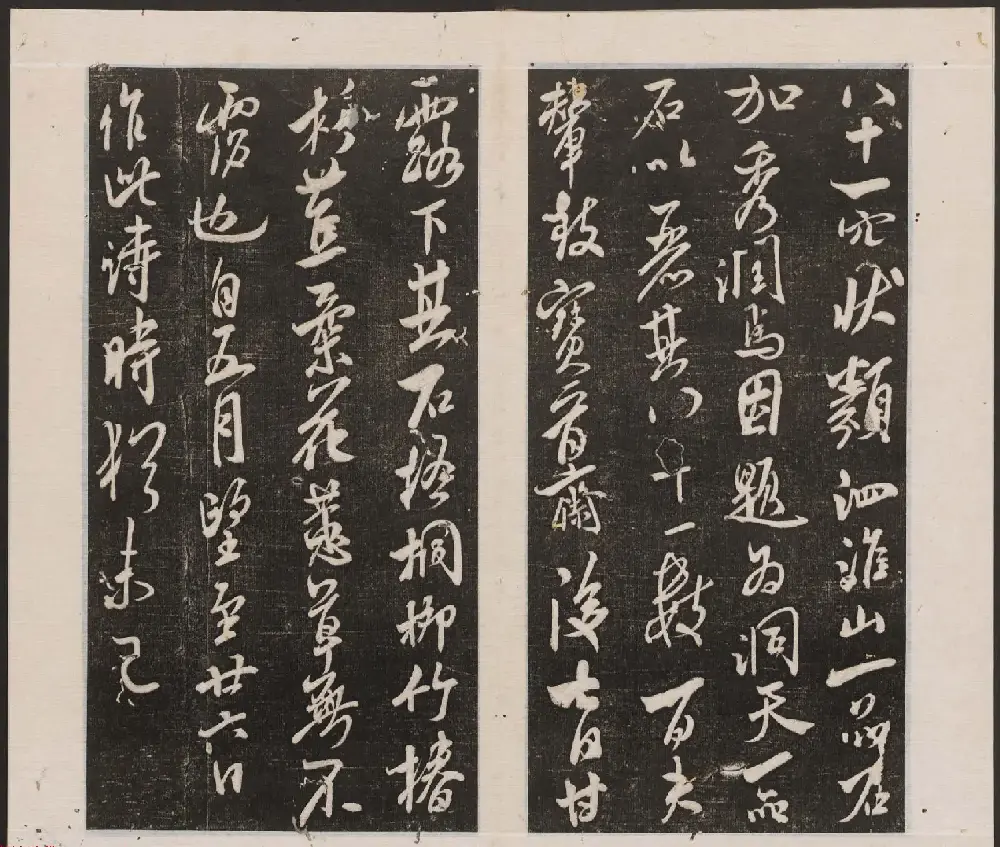 八十一穴狀類泗淮山一品石
加秀潤焉因題為洞天一品
石以麗其八十一數百夫
輦致寶晉齋後七日甘
露下其石梧桐柳竹椿
杉葉花蕙草無不
也自五月望至廿六日
作此詩時猶未已